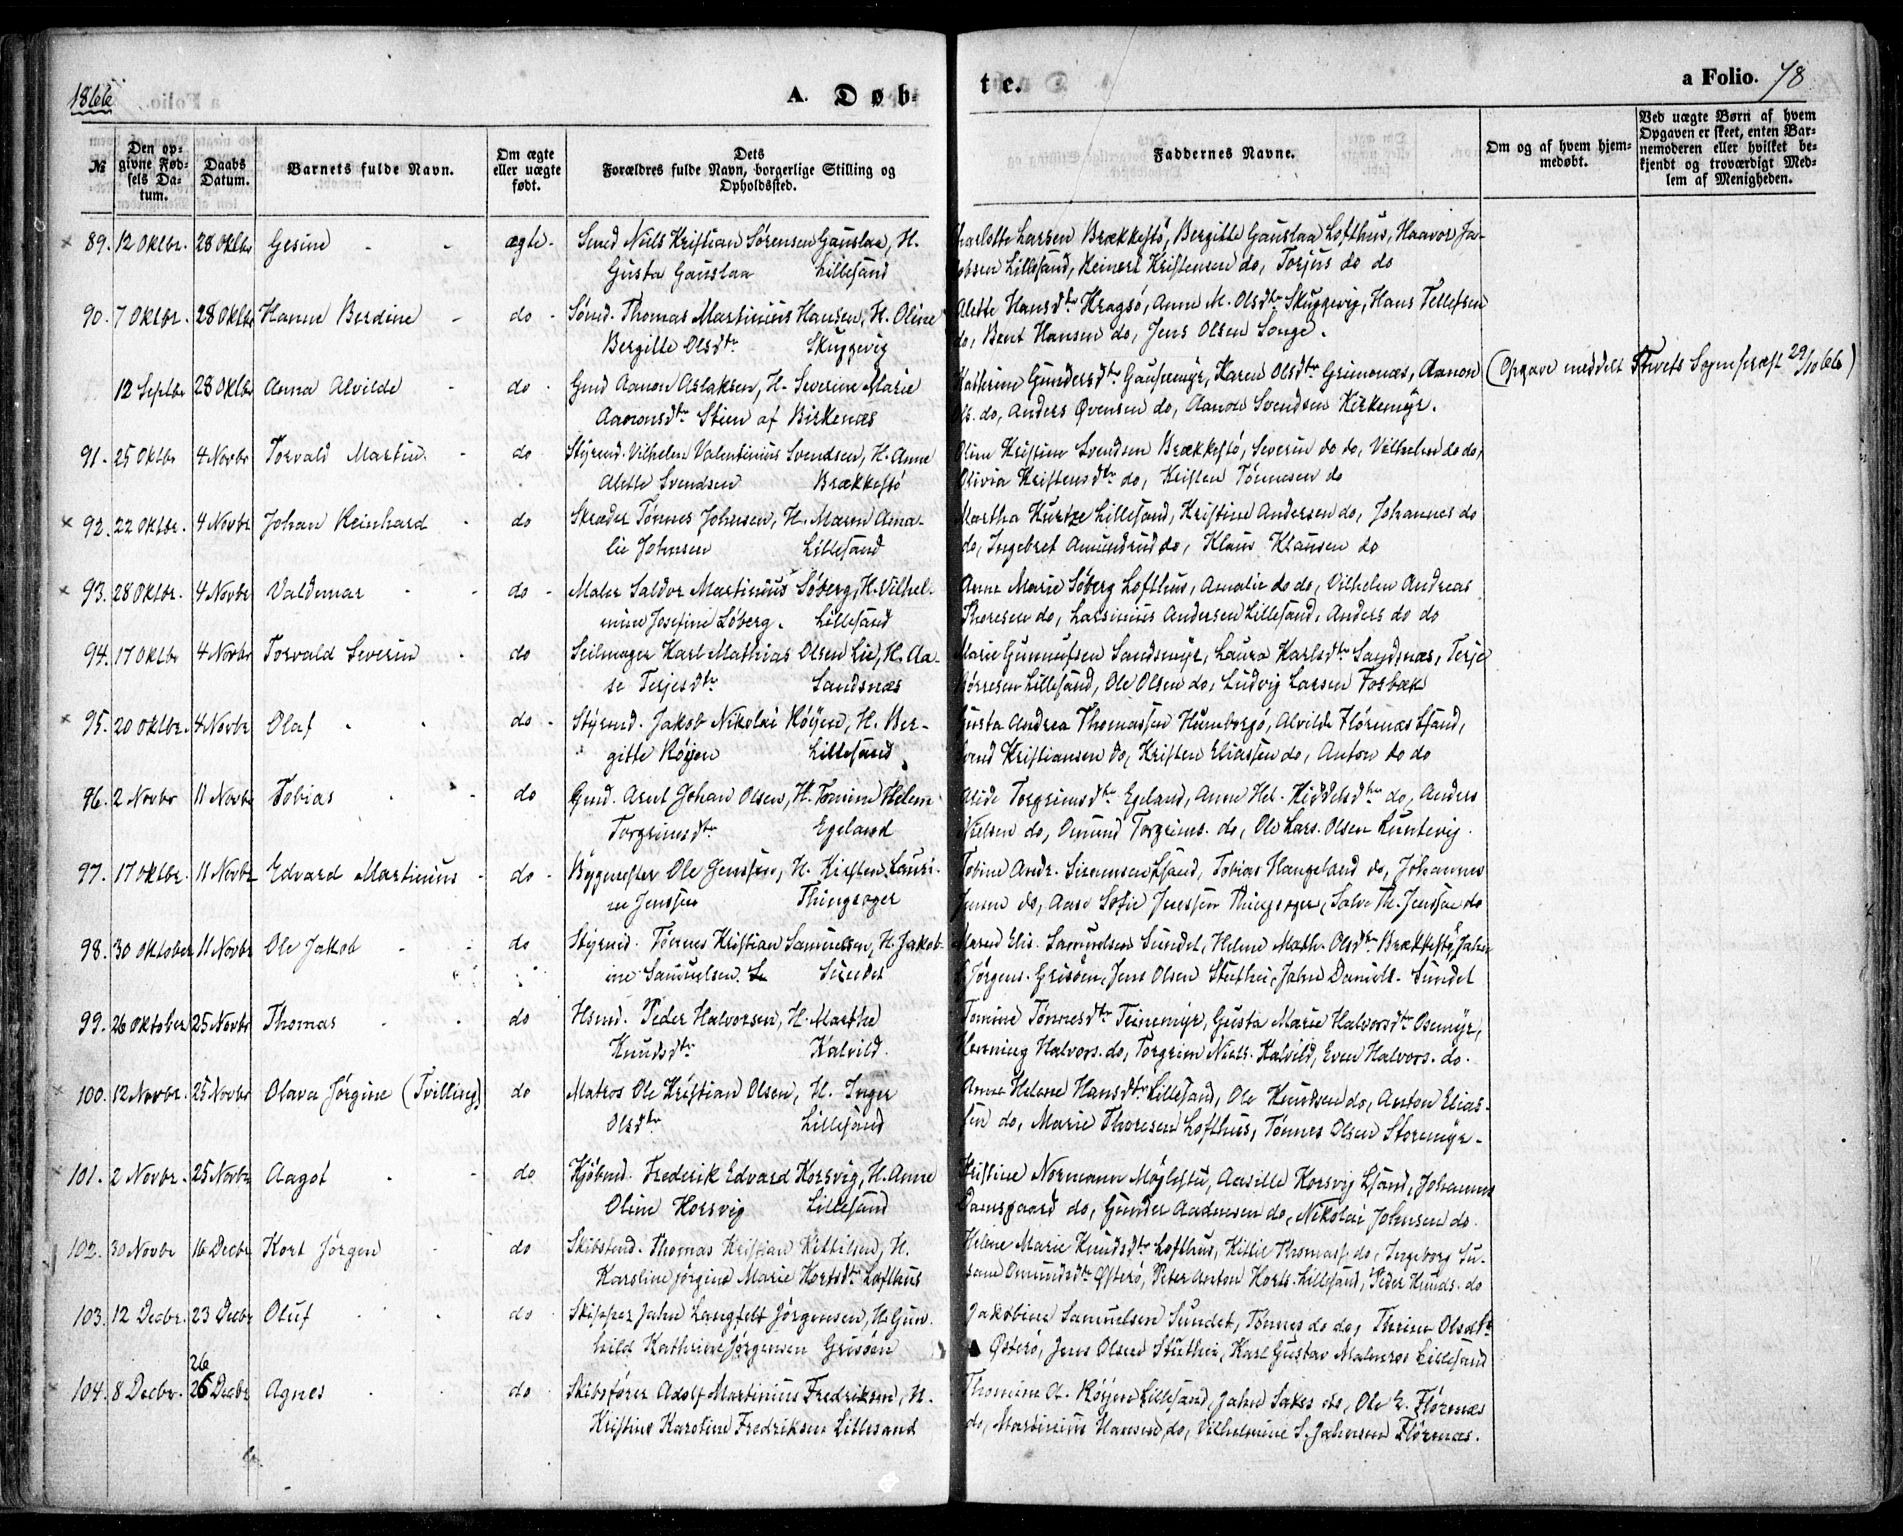 1866.
A. Døb-
te.
a Folio. 78
№
Den op-
givne Fød-
sels Da-
tum.
Daabs
Datum.
Barnets fulde Navn.
Om ægte
eller uægte
født.
Dets
Forældres fulde Navn, borgerlige Stilling og
Opholdssted.
Faddernes Navne.
Om og af hvem hjem-
medøbt.
Ved uægte Børn af hvem
Opgaven er skeet, enten Bar-
nemoderen eller hvilket be-
kjendt og troværdigt Med-
lem af Menigheden.
89. 12 Oktbr. 28 Oktbr Gesine ægte Smed Niels Kristian Sørensen Gauslaa, H. Charlotte Larsen Brækkestø, Bergitte Gauslaa Lofthus, Haavor Ja-
Gusta Gauslaa Lillesand cobsen Lillesand, Reinert Kristensen do, Torjus do do
90. 7 Oktbr. 28 Oktbr Hanne Berdine do Sømd. Thomas Martinius Hansen, H. Oline Alette Hansdtr Kragsø, Anne M. Olsdtr Skuggevig, Hans Tellefsen
Bergitte Olsdtr Skuggevig do, Bent Hansen do, Jens Olsen Songe.
12 Septbr 28 Oktbr Anna Alvilde do Gmd Aanon Aslaksen, H. Severine Marie Kathrine Gundersdtr Gausemyr, Karen Olsdtr Grimenæs, Aanon (Opgave meddelt Tvets Sognepræst 29/10 66)
Aanonsdtr Stien af Birkenæs Ols. do, Anders Øvensen do, Aanon Svendsen Kirkemyr.
91. 25 Oktbr 4 Novbr Torvald Martin do Styrmd. Vilhelm Valentinius Svendsen, H. Anne Oline Kristine Svendsen Brækkestø, Severin do do, Vilhelm do do,
Alette Svendsen Brækkestø Olivia Kristensdtr do, Kristen Tønnesen do
92. 22 Oktbr. 4 Novbr Johan Reinhard do Skræder Tønnes Johnsen, H. Maren Ama- Martha Kurtze Lillesand, Kristine Andersen do, Johannes do
lie Johnsen Lillesand do, Ingebret Amundrud do, Klaus Klausen do
93. 28 Oktbr. 4 Novbr Valdemar do Maler Saldor Martinius Søberg, H. Vilhel- Anne Marie Søberg Lofthus, Amalie do do, Vilhelm Andreas
mine Josefine Søberg. Lillesand Thoresen do, Larsinius Andersen Lillesand, Anders do do
94. 17 Oktbr 4 Novbr Torvald Severin do Seilmager Karl Mathias Olsen Lie, H. Aa- Marie Gunnufsen Sandsmyr, Laura Karlsdtr Sandsnæs, Terje
se Terjesdtr Sandsnæs Børresen Lillesand, Ole Olsen do, Ludvig Larsen Fosbæk
95. 20 Oktbr. 4 Novbr Olaf do Styrmd. Jakob Nikolai Røyen, H. Ber- Gusta Andrea Thomassen Humborgø, Alvilde Florenæs Lsand,
gitte Røyen Lillesand Svend Kristiansen do, Kristen Eliassen do, Anton do do
96. 2 Novbr 11 Novbr Tobias do Gmd. Arnt Johan Olsen, H. Tomine Helene Alide Torgrimsdtr Egeland, Anne Hel. Kiddelsdtr do, Anders
Torgrimsdtr Egeland Nielsen do, Omund Torgrims. do, Ole Lars. Olsen Luntevig.
97. 17 Oktbr. 11 Novbr Edvard Martinius do Bygmester Ole Jenssen, H. Kirsten Lauri- Tobine Andr. Simonsen Lsand, Tobias Haugeland do, Johannes
ne Jenssen Thingsager Jensen do, Aase Sofie Jenssen Thingsager, Salve Th. Jenssen do
98. 30 Oktober 11 Novbr Ole Jakob do Styrmd. Tønnes Kristian Samuelsen, H. Jakob- Maren Elis. Samuelsen Sundet, Helene Math. Olsdtr Brækkestø, Jahn
ine Samuelsen. Sundet Jørgens. Grisøen, Jens Olsen Stuthei, Jahn Daniels. Sundet
99. 26 Oktober 25 Novbr Thomas do Hsmd. Peder Halvorsen, H. Marthe Tomine Tønnesdtr Teinemyr, Gusta Marie Halvorsdtr Osemyr,
Knudsdtr Kalvild. Henning Halvors. do, Torgrim Niels. Kalvild, Even Halvors. do.
100. 12 Novbr. 25 Novbr Olava Jørgine (Tvilling) do Matros Ole Kristian Olsen, H. Inger Anne Helene Hansdtr Lillesand, Ole Knudsen do, Anton Elias-
Olsdtr Lillesand sen do, Marie Thoresen Lofthus, Tønnes Olsen Storemyr.
101. 2 Novbr. 25 Novbr Aagot do Kjøbmd. Frederik Edvard Korsvig, H. Anne Kristine Normann Møglestu, Aasille Korsvig Lsand, Johannes
Oline Korsvig Lillesand Damsgaard do, Gunder Aadnesen do, Nikolai Johnsen do.
102. 30 Novbr 16 Decbr. Kort Jørgen do Skibstmd. Thomas Kristian Kittilsen, H. Helene Marie Knudsdtr Lofthus, Kittil Thomass. do, Ingeborg Su-
Karoline Jørgine Marie Kortsdtr Lofthus sane Omundsdtr Østerø, Peter Anton Korts. Lillesand, Peder Knuds. do
103. 12 Decbr. 23 Decbr Oluf do Skipper Jahn Langfelt Jørgensen, H. Gun- Jakobine Samuelsen Sundet, Tønnes do do, Therine Olsdtr
hild Kathrine Jørgensen Grisøen Østerø, Jens Olsen Stuthei, Karl Gustav Malmros Lillesand
104. 8 Decbr. 26 26 Decbr Agnes do Skibsfører Adolf Martinius Fredriksen, H. Thomine O. Røyen Lillesand, Jahn Sakes do, Ole E. Florenæs
Kristine Karoline Fredriksen Lillesand do, Martinius Hansen do, Vilhelmine S. Jahnsen Florenæs.